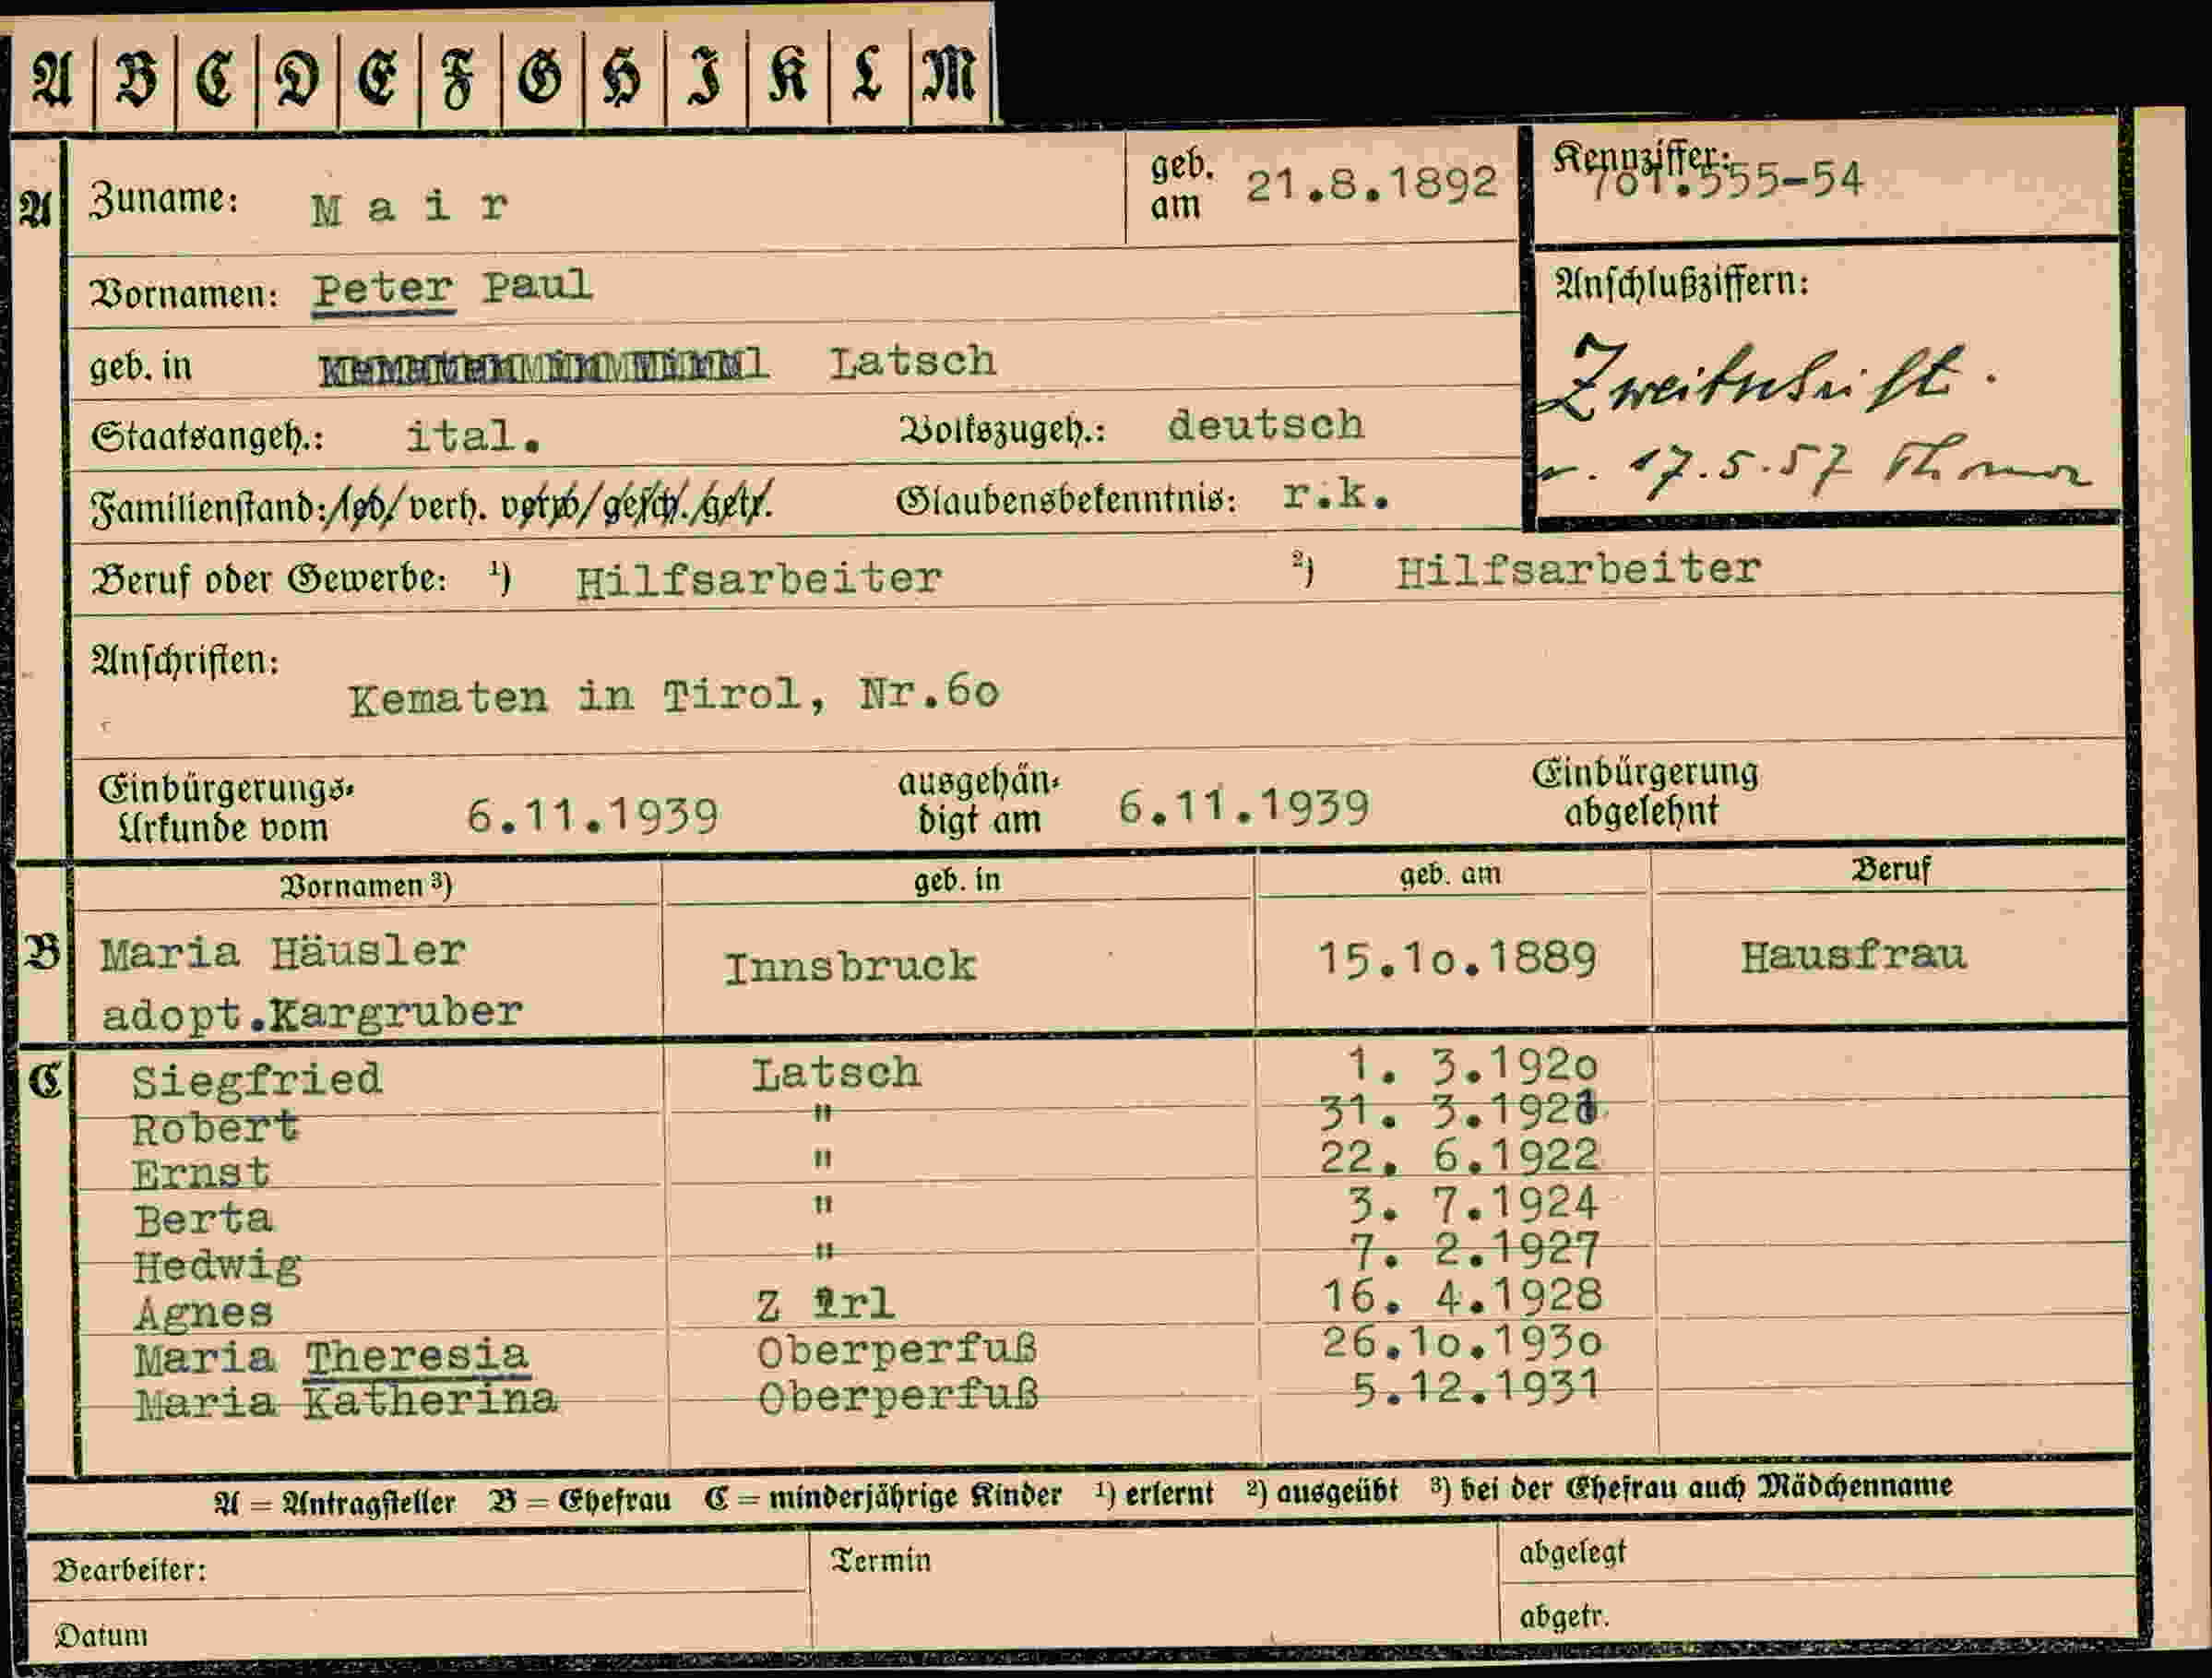 A B C D E F G H I K L M
A
Zuname: Mair
geb. am 21.8.1892
Kennziffer: 701.555-54
Vornamen: Peter Paul
Anschlußziffern:
geb. in Latsch
Zweitschrift.
v. 17.5.57
Staatsangeh.: ital. Volkszugeh.: deutsch
Familienstand: /led/ verh. verw/ gesch./getr. Glaubensbekenntnis: r.k.
Beruf oder Gewerbe: ¹) Hilfsarbeiter ²) Hilfsarbeiter
Anschriften:
Kematen in Tirol, Nr.60
Einbürgerungs-
Urkunde vom 6.11.1939
ausgehän-
digt am 6.11.1939
Einbürgerung
abgelehnt
Vornamen ³) geb. in geb. am Beruf
B Maria Häusler Innsbruck 15.10.1889 Hausfrau
adopt.Kargruber
C Siegfried Latsch 1. 3.1920
Robert " 31. 3.1921
Ernst " 22. 6.1922
Berta " 3. 7.1924
Hedwig " 7. 2.1927
Agnes Zirl 16. 4.1928
Maria Theresia Oberperfuß 26.10.1930
Maria Katherina Oberperfuß 5.12.1931
A = Antragsteller B = Ehefrau C = minderjährige Kinder ¹) erlernt ²) ausgeübt ³) bei der Ehefrau auch Mädchenname
Bearbeiter: Termin abgelegt
Datum abgetr.